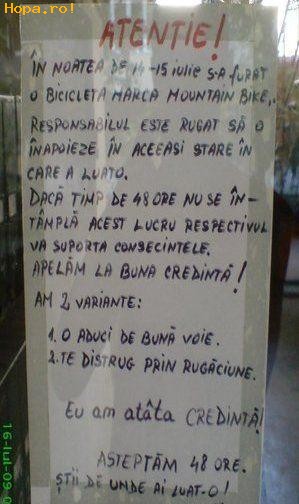 Hopa.ro!
ATENȚIE!
ÎN NOATEA DE 14-15 iulie S-A furat
O BICICLETĂ MARCA MOUNTAIN BIKE,.
RESPONSABILUL ESTE RUGAT SĂ O
ÎNAPOIEZE ÎN ACEEASI STARE ÎN
CARE A LUATO.
DACĂ TIMP DE 48 ORE NU SE ÎN-
TÂMPLĂ ACEST LUCRU RESPECTIVUL
VA SUPORTA CONSECINTELE.
APELĂM LA BUNA CREDINTĂ!
AM 2 VARIANTE:
1. O ADUCI DE BUNĂ VOIE.
2. TE DISTRUG PRIN RUGĂCIUNE.
Eu am atâta CREDINTĂ!
ASTEPTĂM 48 ORE.
ȘTII DE UNDE AI LUAT-O!
16-Iul-09